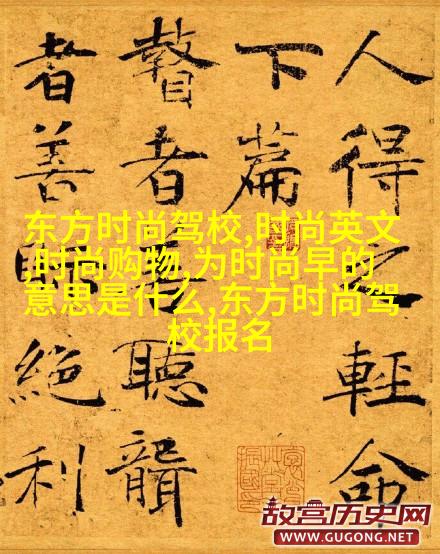 人得之輕命
下篇
瞽者善聽聾
者善視絕利
东方时尚驾校,时尚英文
,时尚购物,为时尚早的
意思是什么,东方时尚驾
校报名
故宫历史网
WWW.GUGONG.NET